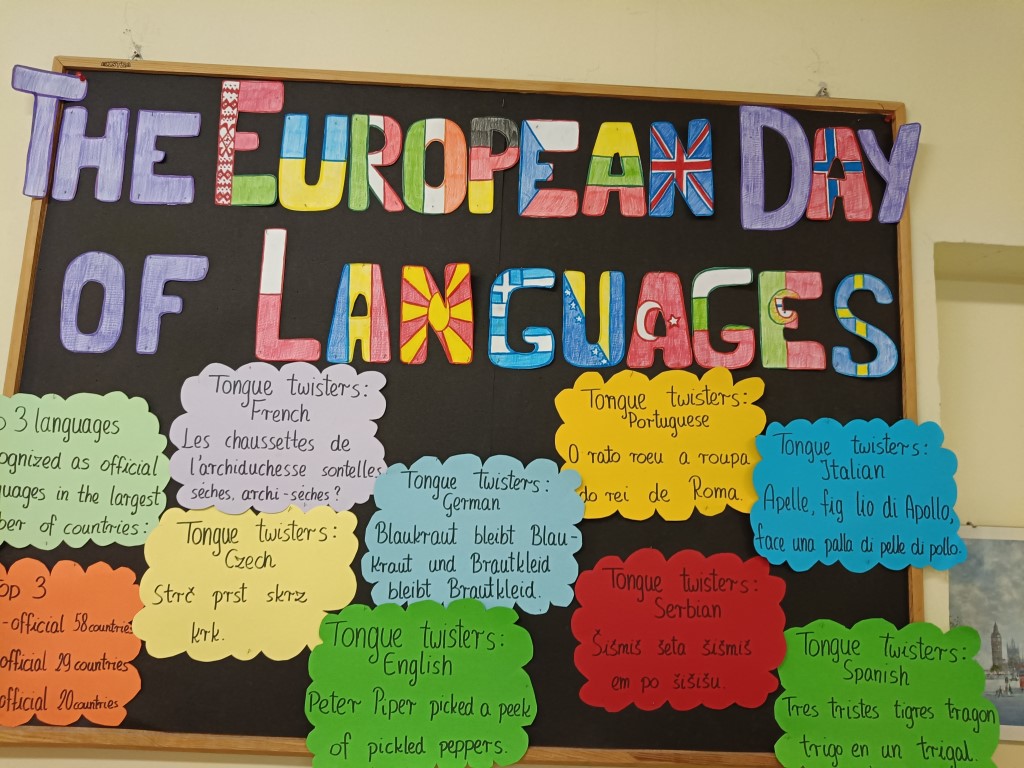 THE EUROPEAN DAY
OF LANGUAGES
3 languages
ognized as official
uages in the largest
ber of countries:
Top 3
-official 58 countries
official 29 countries
official 20 countries
Tongue twisters:
French
Les chaussettes de
l'archiduchesse sontelles
sèches, archi-sèches?
Tongue twisters:
Czech
Strč prst skrz
krk.
Tongue twisters:
German
Blaukraut bleibt Blau-
kraut und Brautkleid
bleibt Brautkleid.
Tongue twisters:
English
Peter Piper picked a peek
of pickled peppers.
Tongue twisters:
Portuguese
O rato roeu a roupa
do rei de Roma.
Tongue twisters:
Serbian
Šišmiš šeta šišmiš
em po šišišu.
Tongue twisters:
Italian
Apelle, fig lio di Apollo,
face una palla di pelle di pollo.
Tongue twisters:
Spanish
Tres tristes tigres tragon
trigo en un trigal.